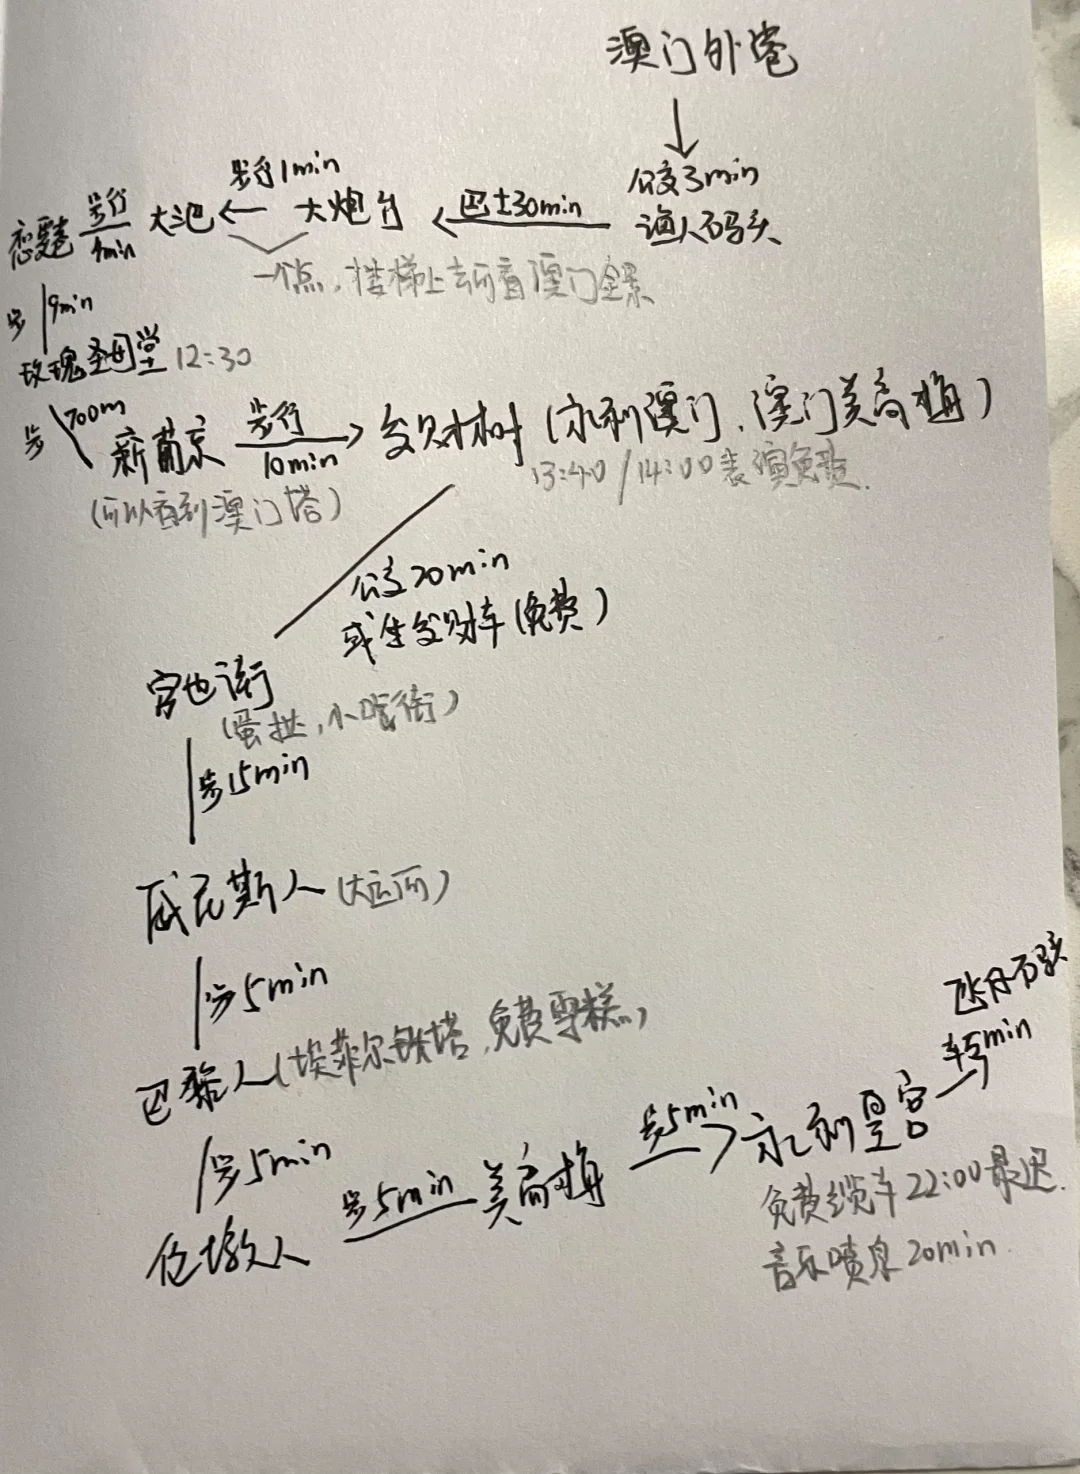 澳门外港
公交3min
渔人码头
巴士30min
大炮台
步行1min
大三巴
步行
4min
恋爱巷
一个点,楼梯上去可看澳门全景
步 9min
玫瑰圣母堂 12:30
步 700m
新葡京
(可以看到澳门塔)
步行
10min
发财树(永利澳门,澳门美高梅)
13:40/14:00表演免费.
公交20min
或坐发财车(免费)
官也街
(蛋挞,小吃街)
步15min
威尼斯人(大运河)
步5min
巴黎人(埃菲尔铁塔,免费雪糕)
步5min
伦敦人
步5min
美高梅
步5min
永利皇宫
免费缆车22:00最迟.
音乐喷泉20min.
车5min